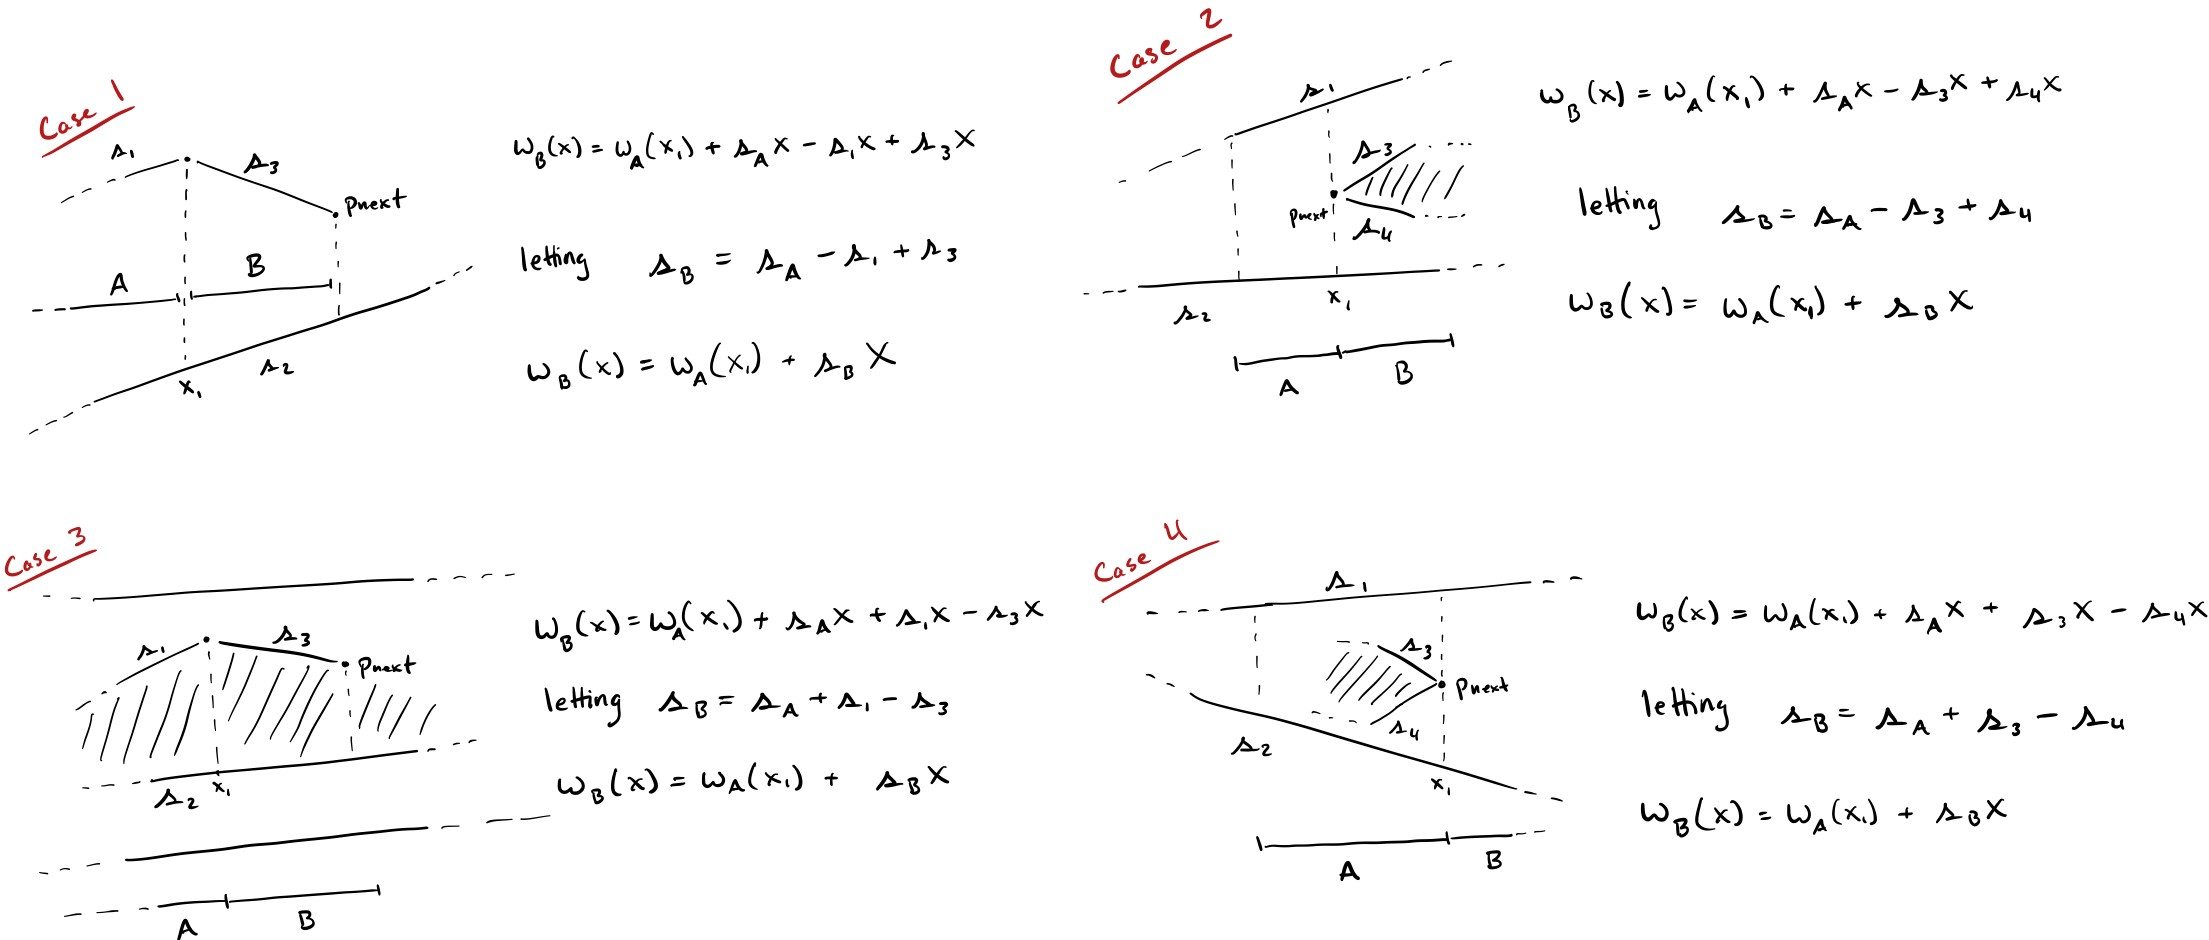 Case 1
s₁
s₃
Pnext
A
B
s₂
x₁
w_B(x) = w_A(x₁) + s_A x - s₁x + s₃x
letting s_B = s_A - s₁ + s₃
w_B(x) = w_A(x₁) + s_B x
Case 2
s₁
s₃
Pnext
s₄
s₂
x₁
A
B
w_B(x) = w_A(x₁) + s_A x - s₃x + s₄x
letting s_B = s_A - s₃ + s₄
w_B(x) = w_A(x₁) + s_B x
Case 3
s₁
s₃
Pnext
s₂
x₁
A
B
w_B(x) = w_A(x₁) + s_A x + s₁x - s₃x
letting s_B = s_A + s₁ - s₃
w_B(x) = w_A(x₁) + s_B x
Case 4
s₁
s₃
Pnext
s₄
s₂
x₁
A
B
w_B(x) = w_A(x₁) + s_A x + s₃x - s₄x
letting s_B = s_A + s₃ - s₄
w_B(x) = w_A(x₁) + s_B x